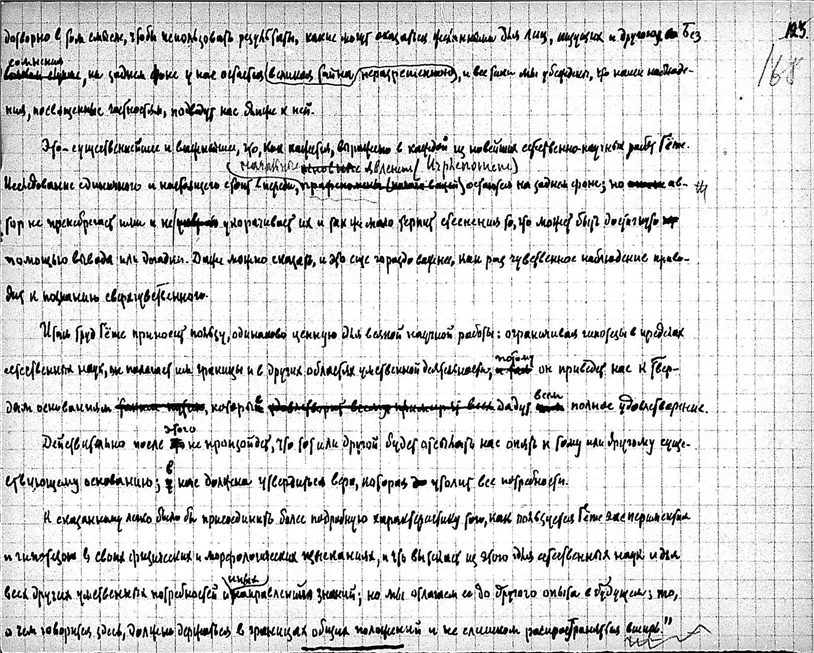 дотворно в том смысле, чтобы использовать результаты, какие могут оказаться желанными для лиц, ищущих и другого. Без
сомнения, на заднем фоне у нас остается (великая тайна неразрешенного), и все-таки мы убеждены, что наши наблюде-
ния, посвященные частностям, подведут нас ближе к ней.
Это - существеннейшее и важнейшее, что, как кажется, выражено в каждой из новейших естественно-научных работ Гёте.
начальные явления (Urphenomene)
Исследование единичного и настоящего стоит впереди, остаются на заднем фоне; но ав-
тор не пренебрегает ими и не укорачивает их и так же мало терпит стеснения то, что может быть достигнуто
помощью вывода или догадки. Даже можно сказать, и это еще гораздо важнее, как раз чувственное наблюдение приво-
дит к познанию сверхчувственного.
труд Гёте приносит пользу, одинаково ценную для всякой научной работы: ограничивая гипотезы в пределах
естественных наук, он полагает им границы и в других областях умственной деятельности; потому он приведет нас к твер-
дым основаниям, которые дадут всем полное удовлетворение.
Действительно после этого не произойдет, что тот или другой будет отсылать нас опять к тому или другому суще-
ствующему основанию; в нас должна утвердиться вера, которая утолит все потребности.
К сказанному легко было бы присоединить более подробную характеристику того, как пользуется Гёте экспериментом
и гипотезою в своих физических и морфологических изысканиях, и что вытекает из этого для естественных наук и для
всех других умственных потребностей и иных направлений знаний; но мы отлагаем это до другого опыта в будущем; то,
о чем говорится здесь, должно держаться в границах общих положений и не слишком распространяться вширь."
125
168